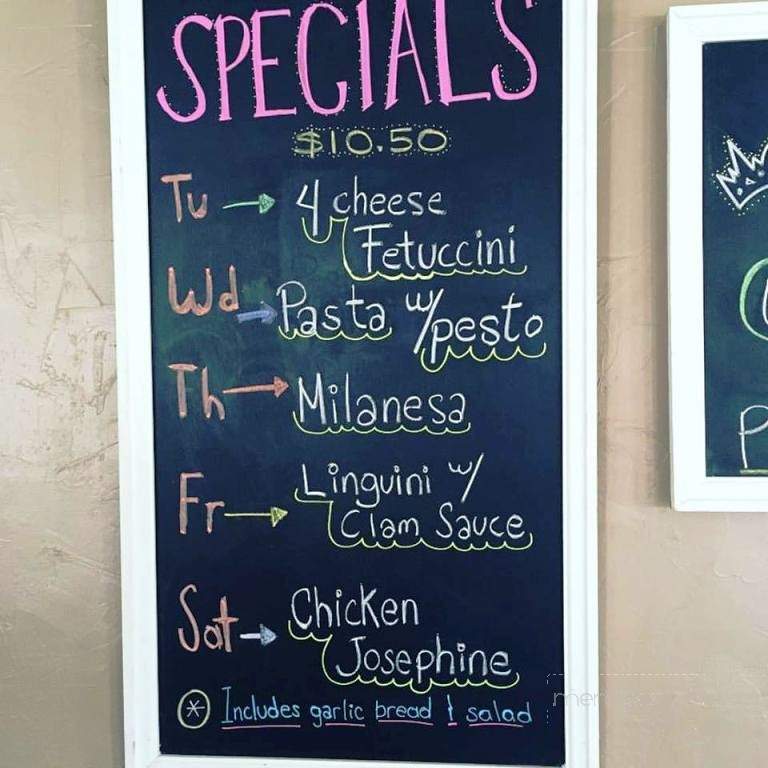 SPECIALS
$10.50
Tu → 4 cheese
Fetuccini
Wd → Pasta w/
pesto
Th → Milanesa
Fr → Linguini w/
Clam Sauce
Sat → Chicken
Josephine
* Includes garlic bread & salad